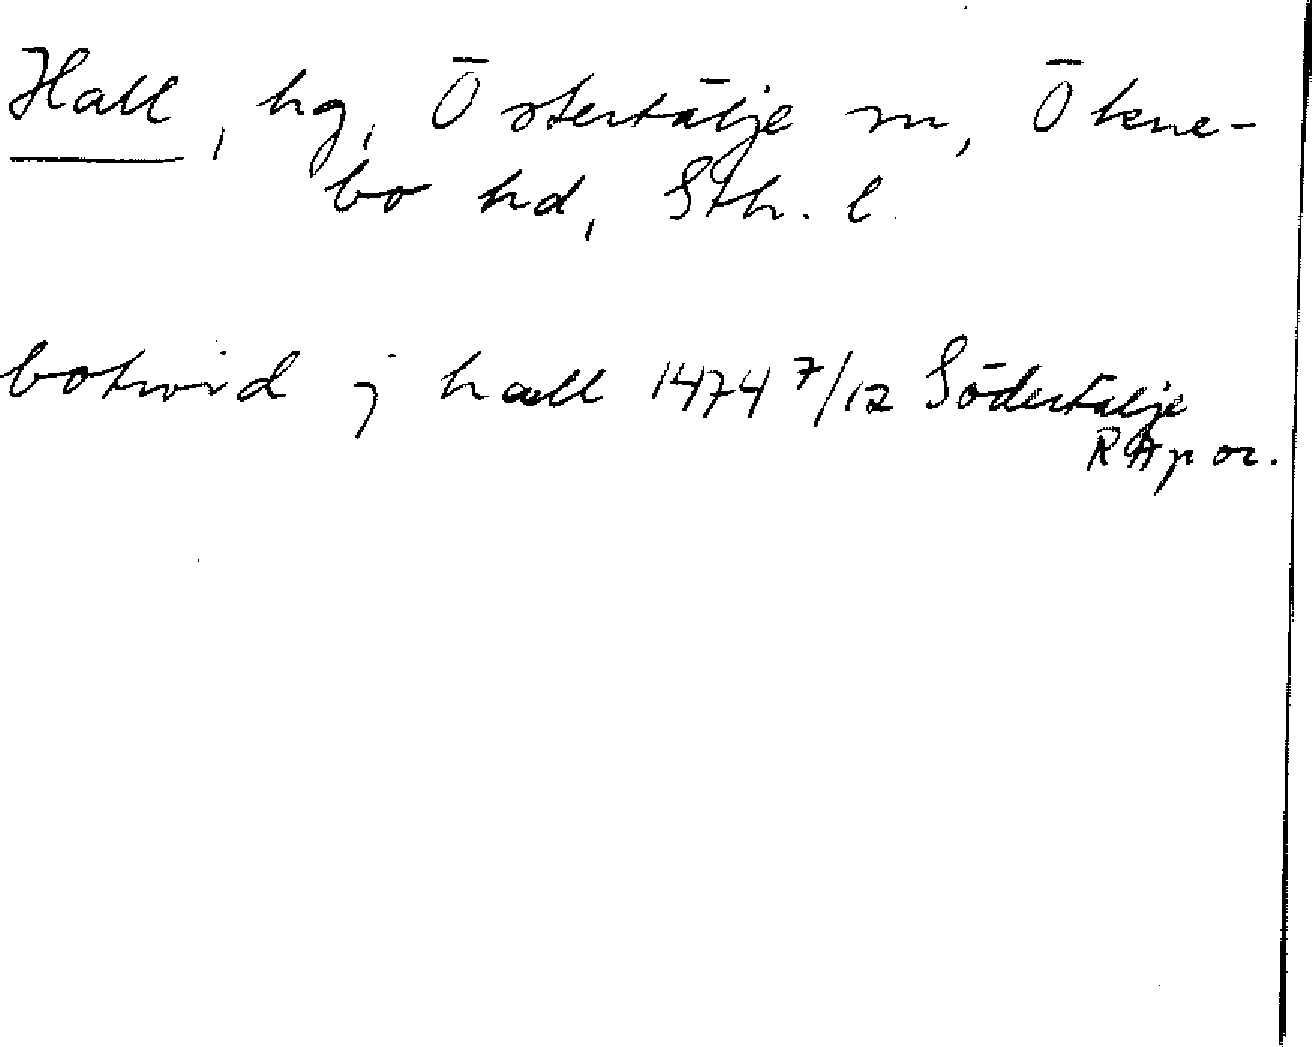 Hall, hg, Östertälje sn, Ökne-
bo hd, Sth. l.
botwid j hall 1474 7/12 Södertälje
RAp or.